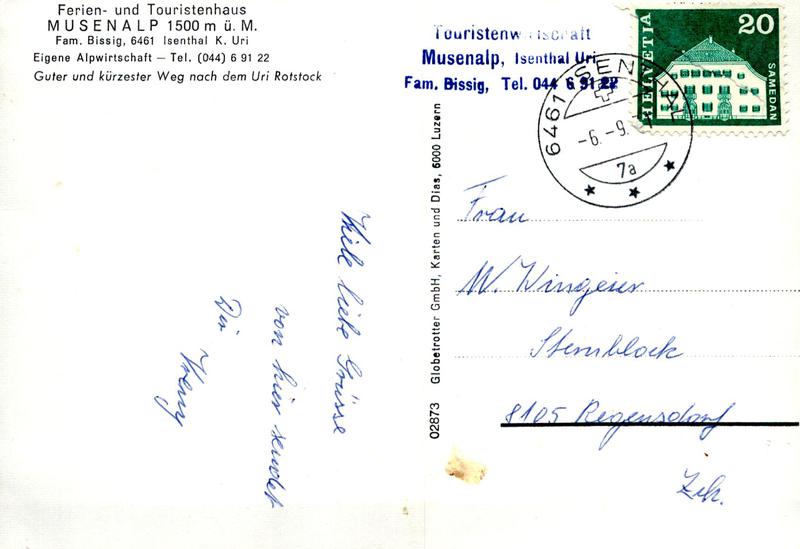 Ferien- und Touristenhaus
MUSENALP 1500 m ü. M.
Fam. Bissig, 6461 Isenthal K. Uri
Eigene Alpwirtschaft – Tel. (044) 6 91 22
Guter und kürzester Weg nach dem Uri Rotstock
Viele liebe Grüsse
von hier sendet
Dir
Touristenwirtschaft
Musenalp, Isenthal Uri
Fam. Bissig, Tel. 044 6 91 22
6461 ISENTHAL
-6.-9.
7a
HELVETIA
20
SAMEDAN
02873 Globetrotter GmbH, Karten und Dias, 6000 Luzern
Frau
W. Wingeier
Sternblock
8105 Regensdorf
Zch.